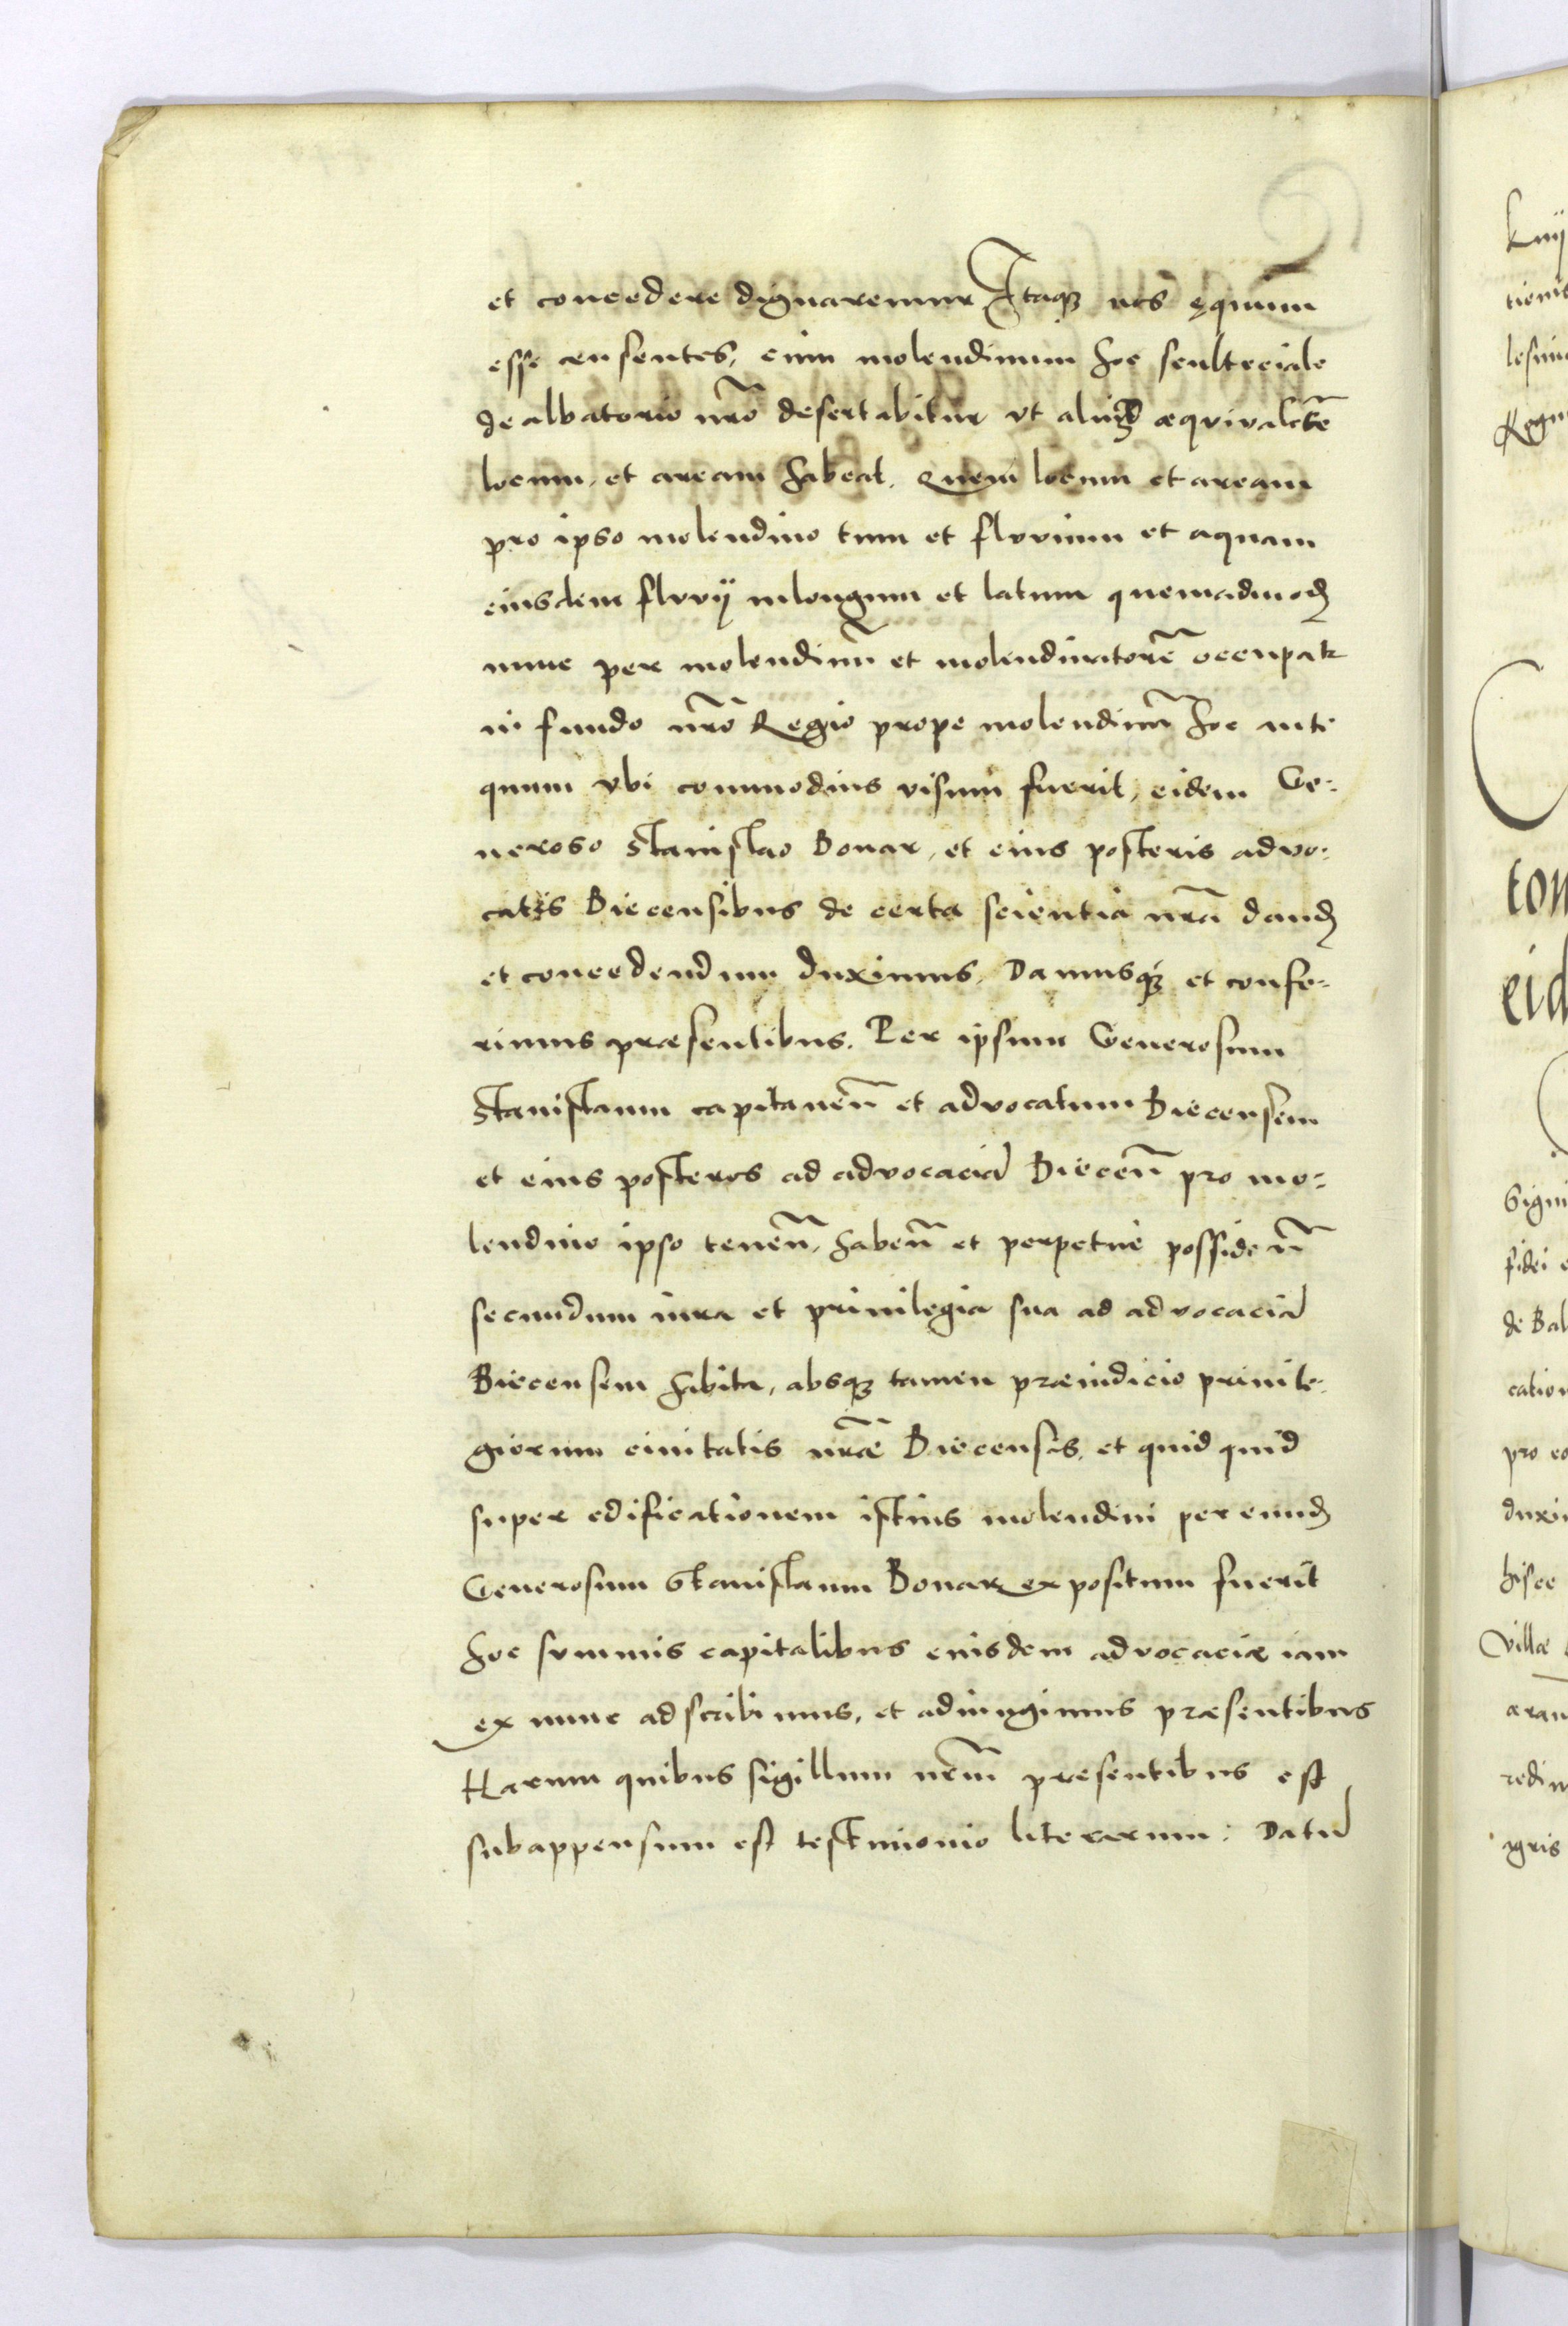 et concedere dignaremur Itaqꝫ nos ęquum̄
esse censentes, cum molendinum hoc sculteciale
dealbatorio nr̃o desertabitur vt aliud æqvivalẽtẽ
locum, et aream habeat. Quem locum et aream
pro ipso molendino tum et flvvium et aquam
eiusdem flvvij inlongum et latum quemadmodꝫ
nunc per molendinũ et molendinatorẽ occupatr
in fundo nr̃o Regio prope molendinũ hoc ante
quum vbi commodius visum fuerit, eidem Ge-
neroso Stanislao Bonar, et eius posteris advo-
catis Biecensibus de certa scientia nr̃a dandꝫ
et concedendum duximus. Damusqꝫ et confe-
rimus præsentibus. Per ipsum Generosum
Stanislaum capitaneũ et advocatum Biecensem
et eius posteros ad advocaciã Biecen̄ pro mo-
lendino ipso tenen̄, haben̄ et perpetue possiden̄
secundum iura et priuilegia sua ad advocaciã
Biecensem habita, absqꝫ tamen præiudicio priuile-
giorum ciuitatis nr̃æ Biecensis, et quid quid
super edificationem istius molendini per eundꝫ
Generosum Stanislaum Bonar expositum fuerit
hoc svmmis capitalibus eiusdem advocaciæ iam
ex nunc adscribimus, et adiungimus præsentibus
Harum quibus sigillum nr̃um presentibus est
subappensum est testimonio literarum: Datũ